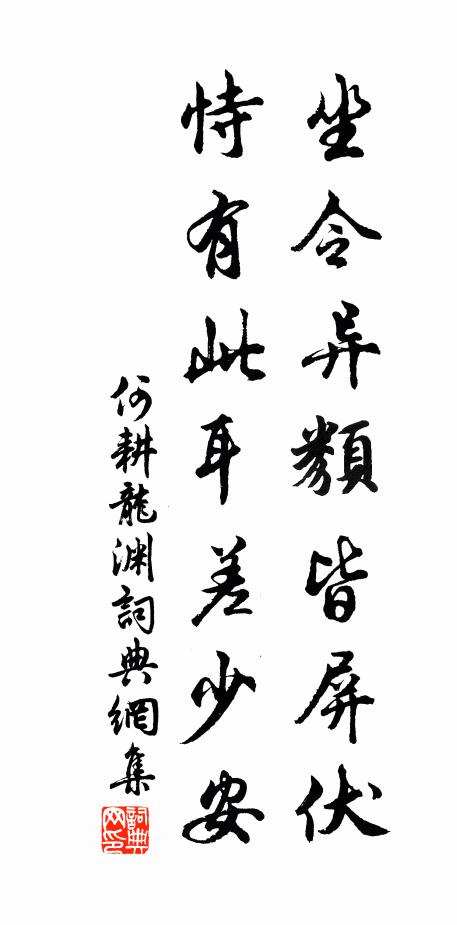 坐令异類皆屏伏
恃有此耳差少安
何耕龍淵詞典網集
詞典网印